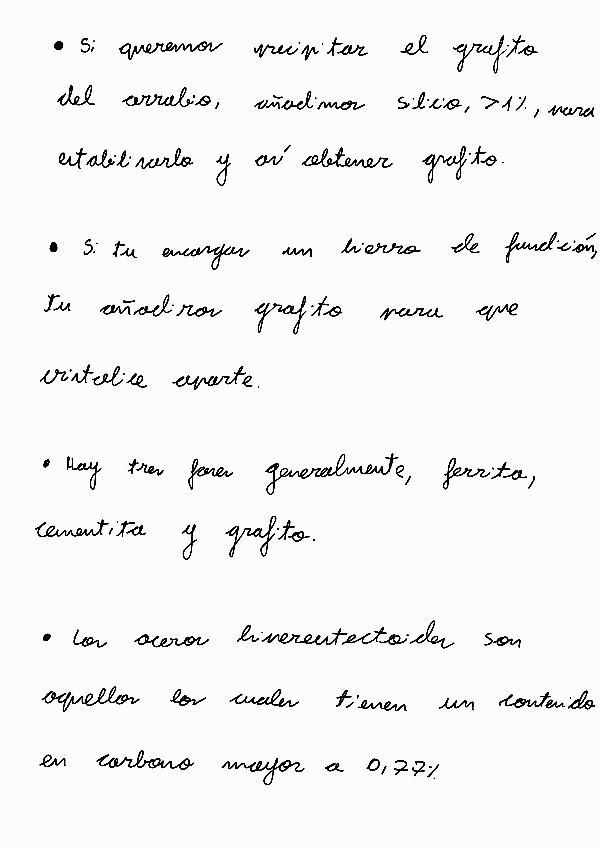 • Si queremos precipitar el grafito
del arrabio, añadimos silicio, >1%, para
estabilizarlo y así obtener grafito.
• Si tu encargas un hierro de fundición,
tu añadiras grafito para que
cristalice aparte.
• Hay tres fases generalmente, ferrita,
cementita y grafito.
• Los aceros hipereutectoides son
aquellos los cuales tienen un contenido
en carbono mayor a 0,77%